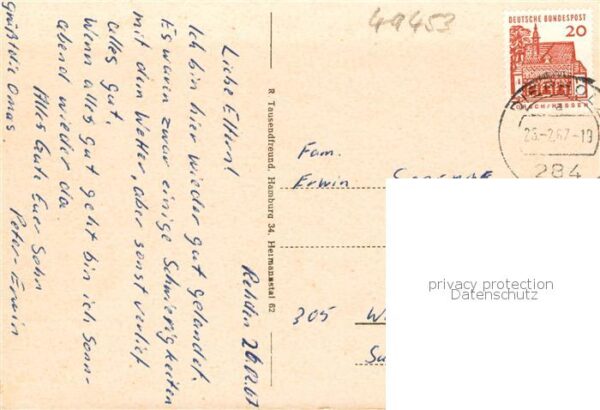 49453
Rehden 26.02.67
Liebe Eltern!
Ich bin hier wieder gut gelandet.
Es waren zwar einige Schwierigkeiten
mit dem Wetter, aber sonst verlief
alles gut.
Wenn alles gut geht bin ich Sonn-
abend wieder da.
Alles Gute Euer Sohn
Peter-Erwin
grüßt die Omas.
R. Tausendfreund, Hamburg 34, Hermannstal 62
DEUTSCHE BUNDESPOST
20
LORSCH/HESSEN
a
26.-2.67-19
284
Fam.
Erwin
305
privacy protection
Datenschutz